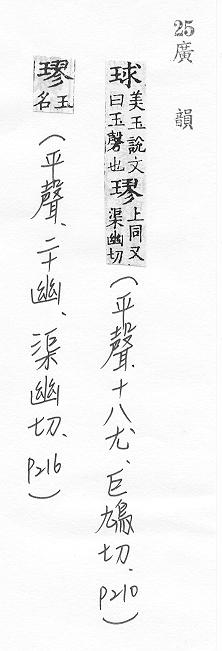 25廣韻
球美玉說文曰玉磬也璆上同又渠幽切(平聲、十八尤、巨鳩切、p210)
璆玉名(平聲、二十幽、渠幽切、p216)